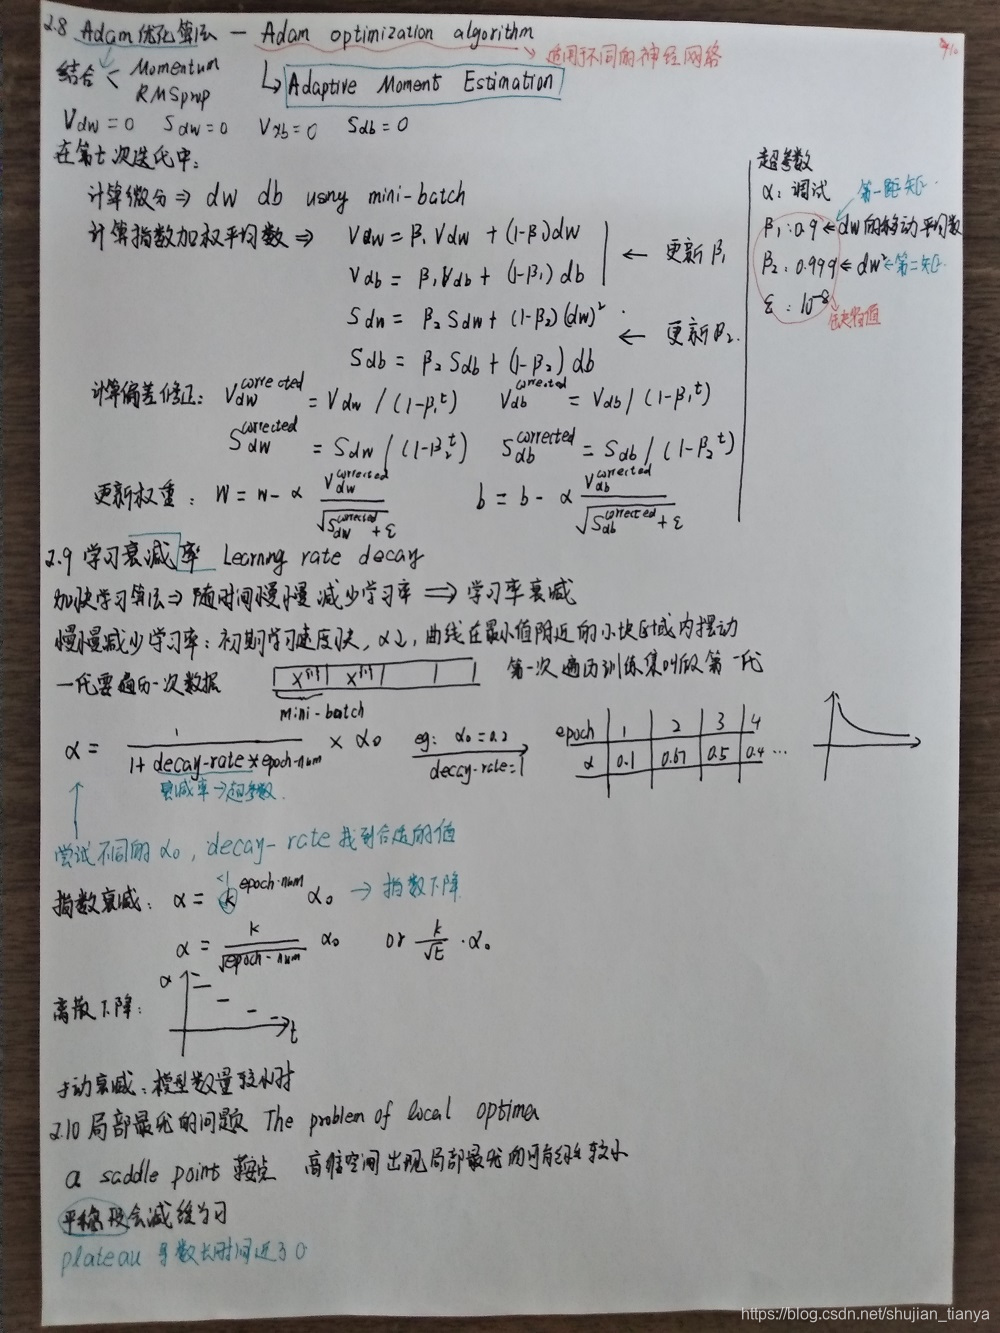 2.8 Adam优化算法 — Adam optimization algorithm
适用于不同的神经网络
结合 < Momentum
RMSprop
Adaptive Moment Estimation
Vdw=0 Sdw=0 Vdb=0 Sdb=0
在第t次迭代中:
计算微分⇒ dw db using mini-batch
计算指数加权平均数 ⇒ Vdw = β₁Vdw + (1-β₁)dw
Vdb = β₁Vdb + (1-β₁)db
← 更新β₁
Sdw = β₂Sdw + (1-β₂)(dw)²
Sdb = β₂Sdb + (1-β₂)db
← 更新β₂.
计算偏差修正: Vdw^corrected = Vdw / (1-β₁^t) Vdb^corrected = Vdb / (1-β₁^t)
Sdw^corrected = Sdw / (1-β₂^t) Sdb^corrected = Sdb / (1-β₂^t)
更新权重: W = w - α Vdw^corrected / √Sdw^corrected + ε b = b - α Vdb^corrected / √Sdb^corrected + ε
超参数
α: 调试
第一阶矩
β₁: 0.9 ← dw的移动平均数
β₂: 0.999 ← dw² ← 第二矩
ε: 10^-8
2.9 学习衰减率 Learning rate decay
加快学习算法⇒ 随时间慢慢减少学习率 ⇒ 学习率衰减
慢慢减少学习率: 初期学习速度快, α↓, 曲线在最小值附近的小块区域内摆动
一代要遍历一次数据
x^{1} x^{1}
mini-batch
第一次遍历训练集叫做第一代
α = 1 / (1 + decay-rate × epoch-num) × α₀
衰减率→超参数.
eg: α₀ = 0.2
decay-rate=1
epoch 1 2 3 4
α 0.1 0.67 0.5 0.4 ...
尝试不同的α₀, decay-rate 找到合适的值
<1
指数衰减: α = k^epoch-num α₀ → 指数下降
α = k / √epoch-num α₀ or k / √t · α₀
离散下降:
α
t
手动衰减: 模型数量较小时
2.10 局部最优的问题 The problem of local optima
a saddle point 鞍点 高维空间出现局部最优的可能性较小
平稳段会减缓学习
plateau 导数长时间近于0
https://blog.csdn.net/shujian_tianya